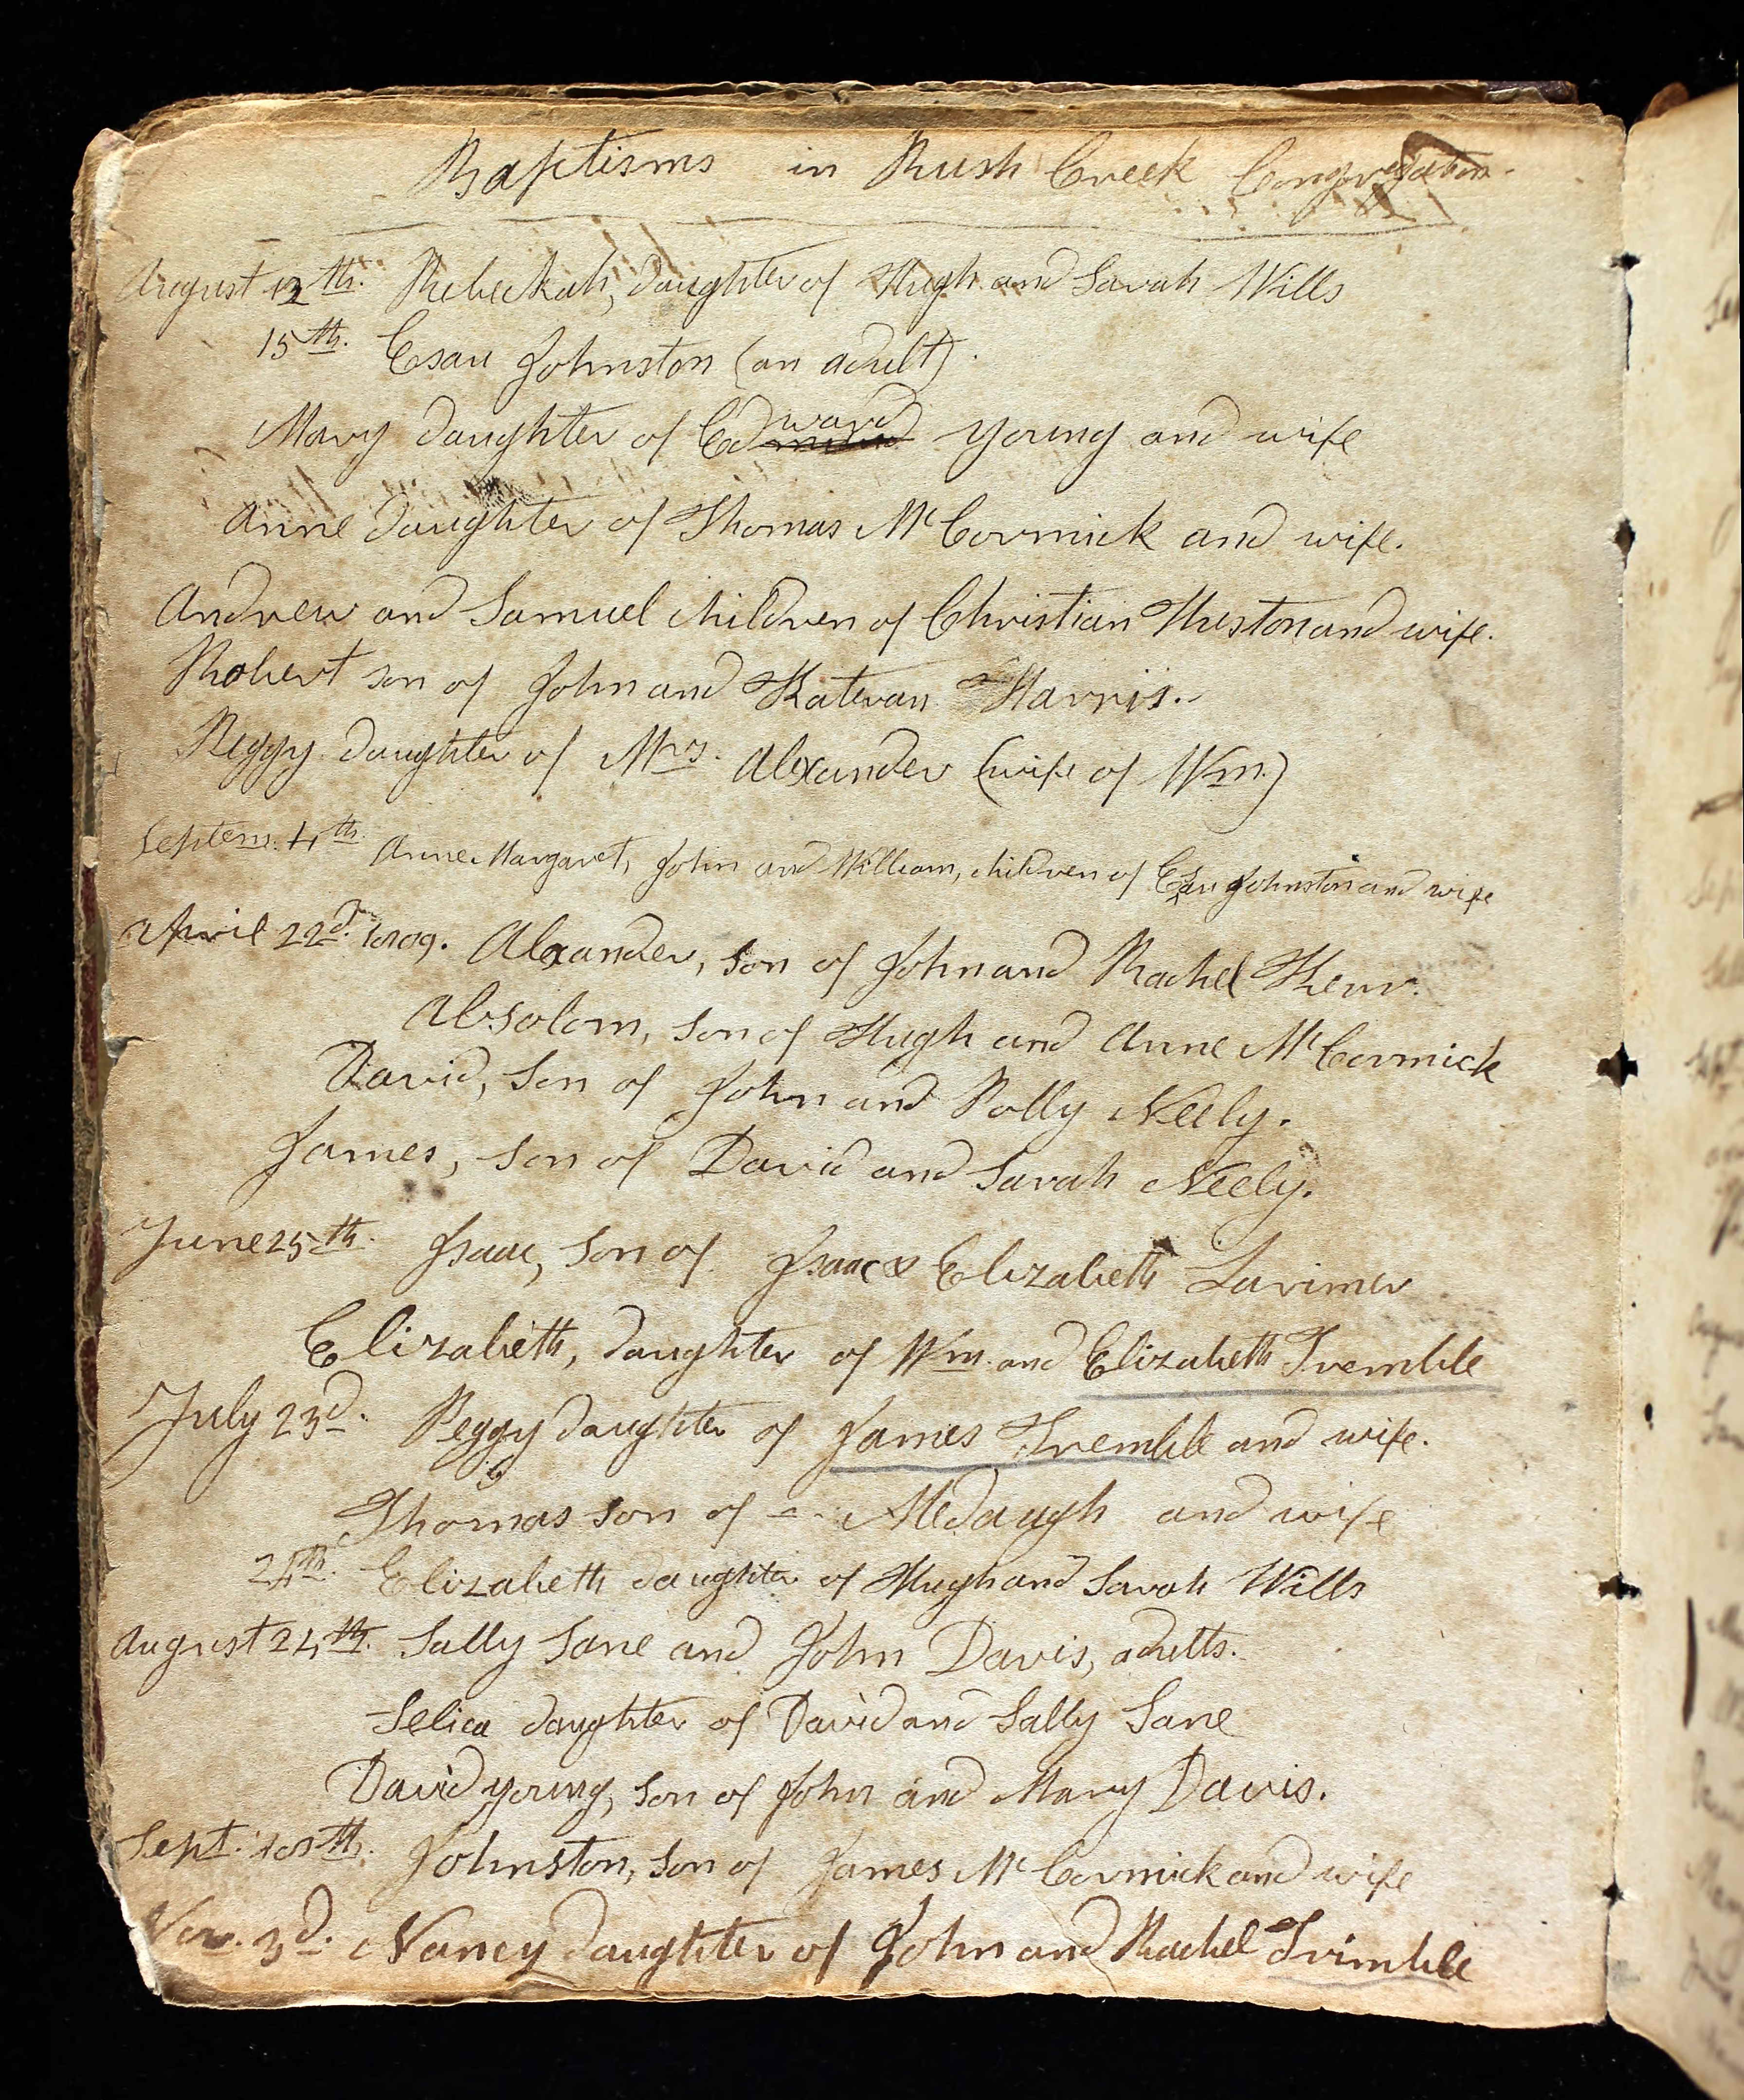 Baptisms in Rush Creek Congregation.
August 12th. Rebeckah, daughter of Hugh and Sarah Wills
15th. Esau Johnston (an adult).
Mary daughter of Edward young and wife
Anne daughter of Thomas McCormick and wife.
Andrew and Samuel children of Christian Huston and wife.
Robert son of John and Katevan Harris.
Peggy daughter of Mrs. Alexander (wife of Wm.)
Septem. 4th Anne Margaret, John and William, children of Esau Johnston and wife
April 22d. 1809. Alexander, son of John and Rachel Kerr.
Absolom, son of Hugh and Anne McCormick
David, son of John and Polly Neely.
James, son of David and Sarah Neely.
June 25th. Isaac, son of Isaac & Elizabeth Larimer
Elizabeth, daughter of Wm. and Elizabeth Tremble
July 23d. Peggy daughter of James Tremble and wife.
Thomas son of - Medaugh and wife
24th. Elizabeth daughter of Hugh and Sarah Wills
August 24th. Sally Lane and John Davis, adults.
Selica daughter of David and Sally Lane
David young, son of John and Mary Davis.
Sept. Johnston, son of James McCormick and wife
Nov. 3d. Nancy daughter of John and Rachel Trimble